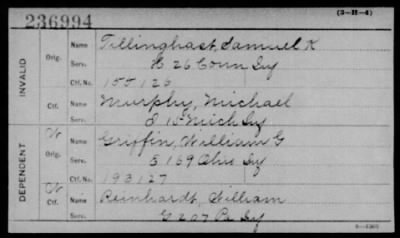 236994
(3-H-4)
INVALID
Orig.
Name Tillinghast, Samuel K
Serv. H 26 Conn Inf
Ctf. No. 155126
Ctf.
Name Murphy, Michael
Serv. I 15 Mich Inf
DEPENDENT
W
Orig.
Name Griffin, William G
Serv. E 169 Ohio Inf
Ctf. No. 193127
W
Ctf.
Name Reinhardt, William
Serv. G 207 Pa Inf